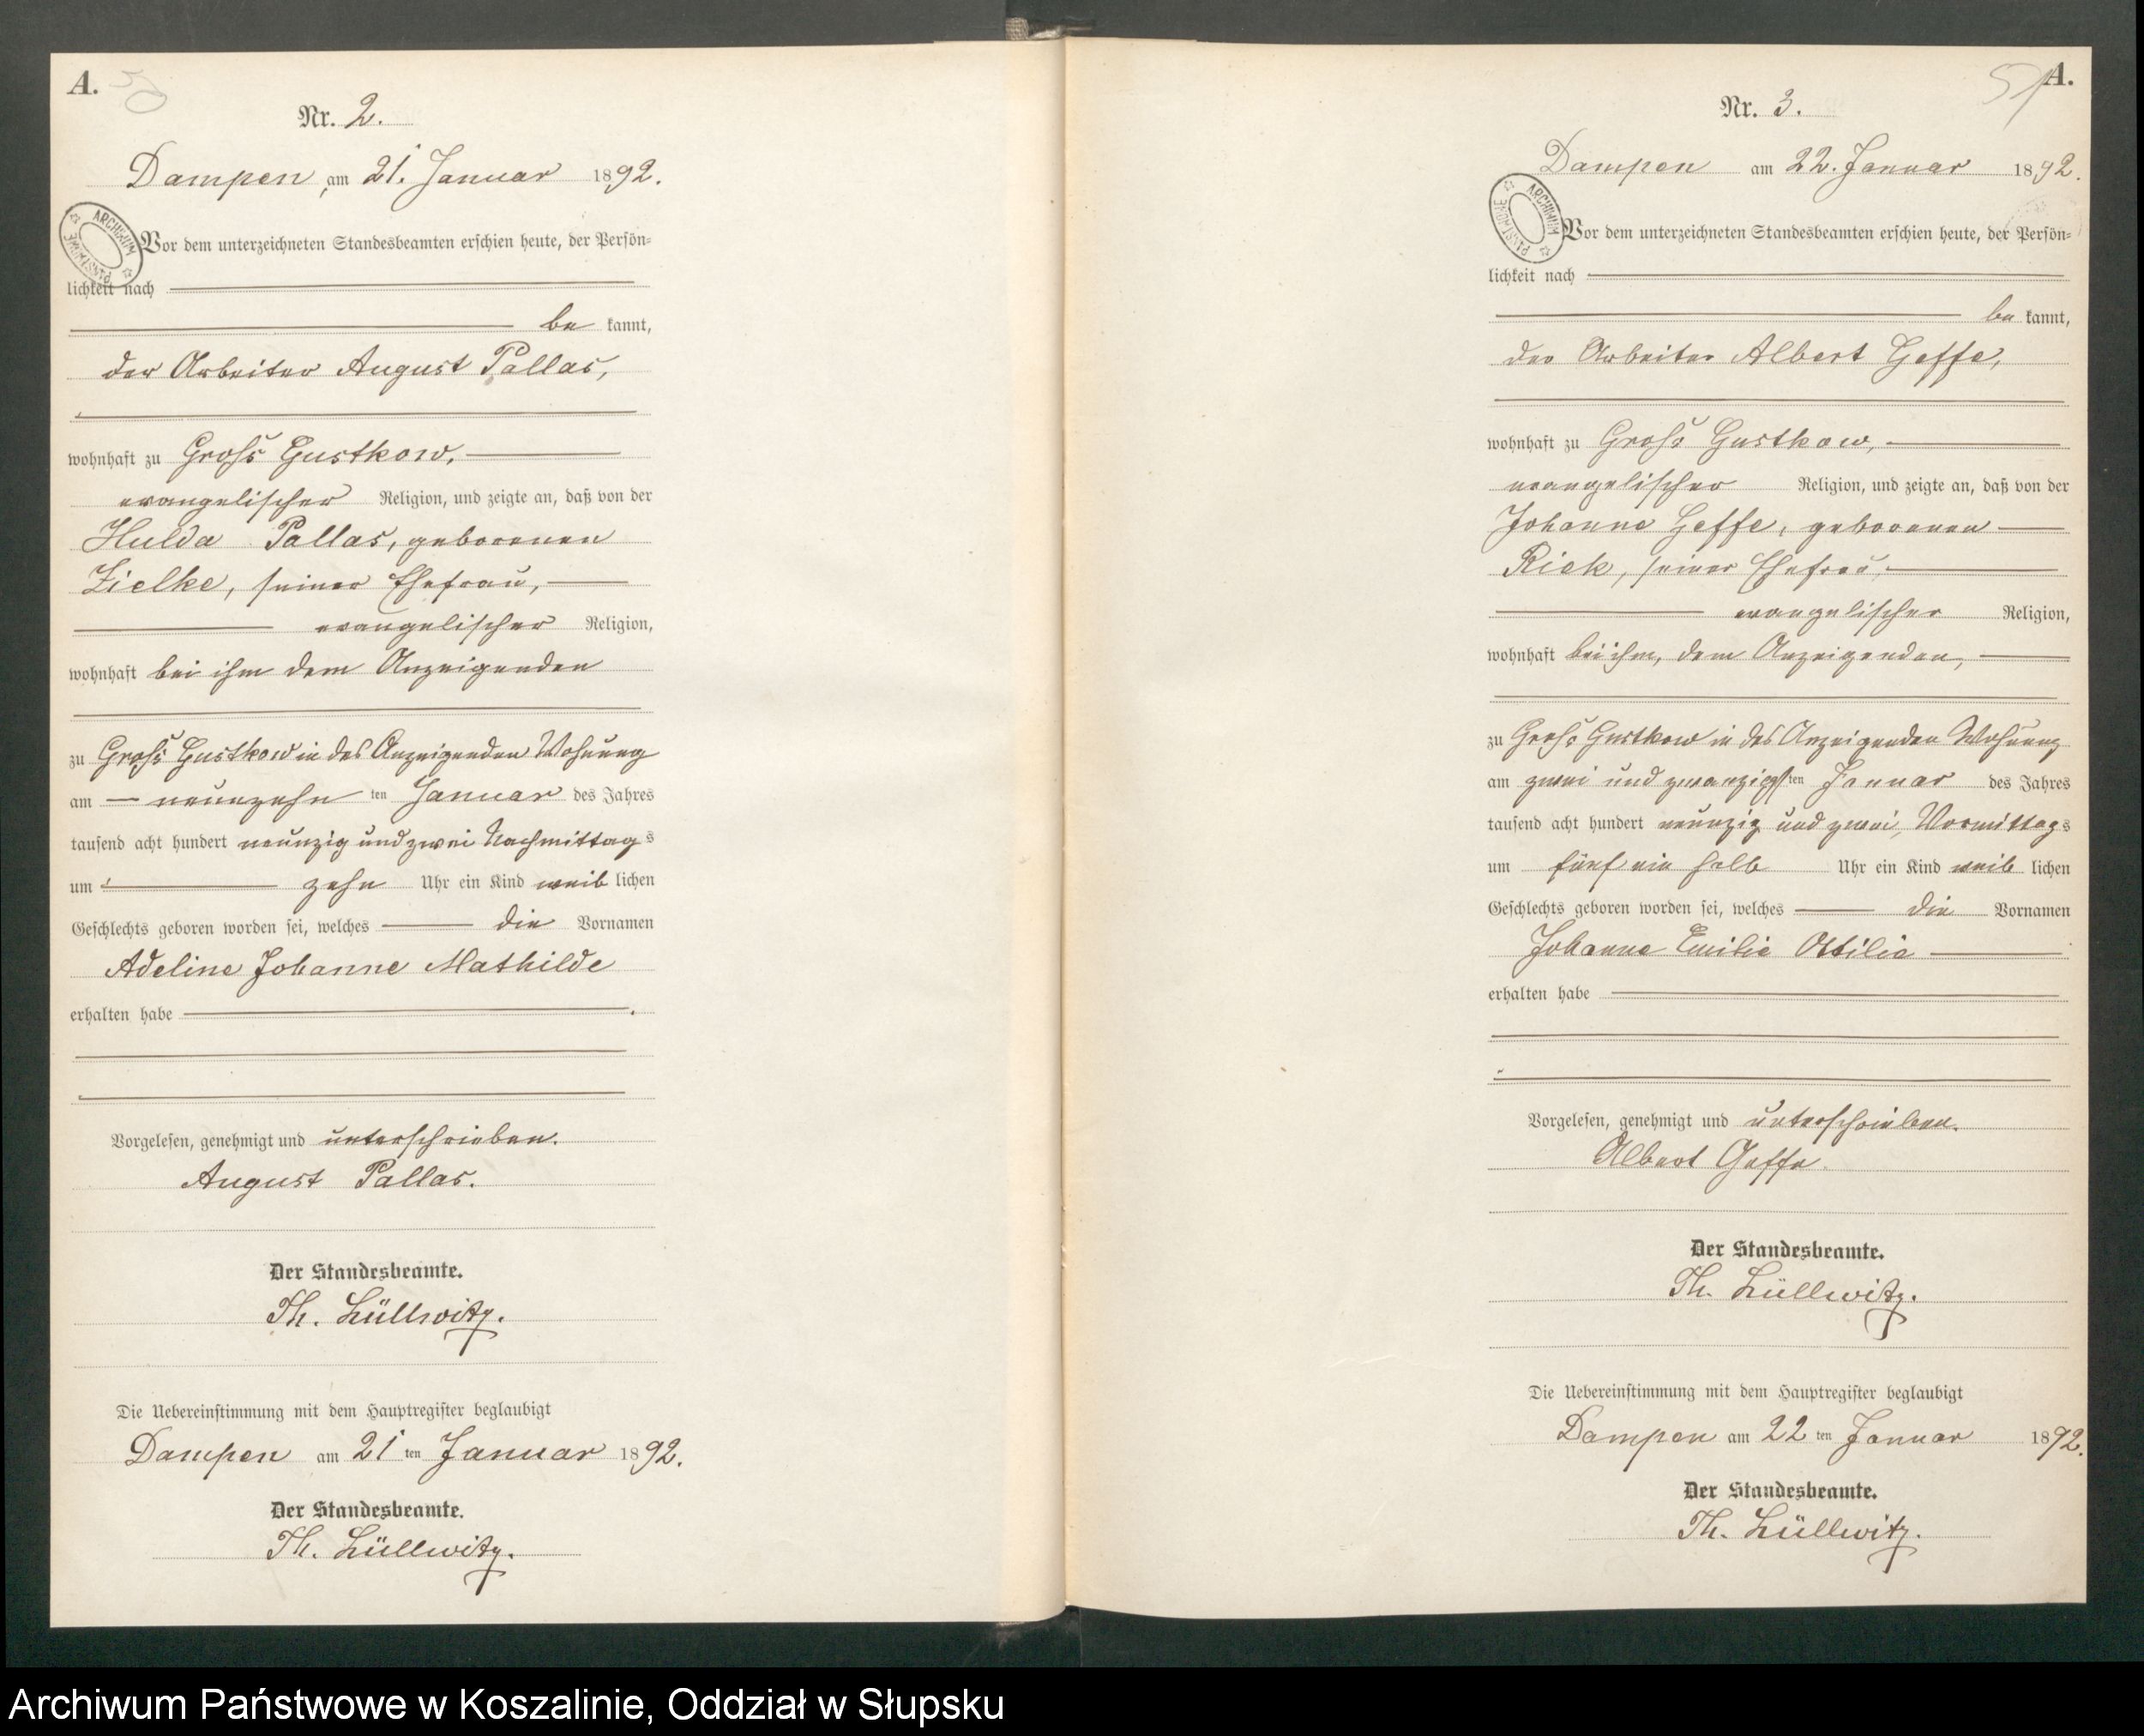 A. 50
Nr. 2.
Dampen, am 21. Januar 1892.
ARCHIWUM PAŃSTWOWE
Vor dem unterzeichneten Standesbeamten erschien heute, der Persön=
lichkeit nach
be kannt,
der Arbeiter August Pallas,
wohnhaft zu Groß Gustkow,
evangelischer Religion, und zeigte an, daß von der
Hulda Pallas, geborenen
Zielke, seiner Ehefrau,
evangelischer Religion,
wohnhaft bei ihm dem Anzeigenden
zu Groß Gustkow in des Anzeigenden Wohnung
am neunzehn ten Januar des Jahres
tausend acht hundert neunzig und zwei Nachmittags
um zehn Uhr ein Kind weib lichen
Geschlechts geboren worden sei, welches die Vornamen
Adeline Johanne Mathilde
erhalten habe
Vorgelesen, genehmigt und unterschrieben.
August Pallas.
Der Standesbeamte.
Th. Lüllwitz.
Die Uebereinstimmung mit dem Hauptregister beglaubigt
Dampen am 21 ten Januar 1892.
Der Standesbeamte.
Th. Lüllwitz.
51 A.
Nr. 3.
Dampen am 22. Januar 1892.
ARCHIWUM PAŃSTWOWE
Vor dem unterzeichneten Standesbeamten erschien heute, der Persön=
lichkeit nach
be kannt,
der Arbeiter Albert Geffe,
wohnhaft zu Groß Gustkow,
evangelischer Religion, und zeigte an, daß von der
Johanne Geffe, geborenen
Riek, seiner Ehefrau,
evangelischer Religion,
wohnhaft bei ihm, dem Anzeigenden,
zu Groß Gustkow in des Anzeigenden Wohnung
am zwei und zwanzigsten Januar des Jahres
tausend acht hundert neunzig und zwei, Vormittags
um fünf ein halb Uhr ein Kind weib lichen
Geschlechts geboren worden sei, welches die Vornamen
Johanne Emilie Ottilie
erhalten habe
Vorgelesen, genehmigt und unterschrieben.
Albert Geffe.
Der Standesbeamte.
Th. Lüllwitz.
Die Uebereinstimmung mit dem Hauptregister beglaubigt
Dampen am 22 ten Januar 1892.
Der Standesbeamte.
Th. Lüllwitz.
Archiwum Państwowe w Koszalinie, Oddział w Słupsku